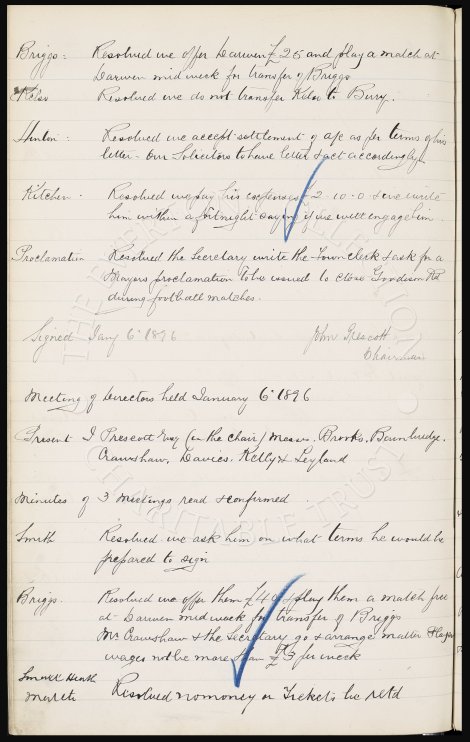 Briggs - Resolved we offer Darwen £25 and play a match at
Darwen mid week for transfer of Briggs
Kelso Resolved we do not transfer Kelso to Bury.
Hinton - Resolved we accept settlement of a/c as per terms of his
letter - our Solicitors to have letter & act accordingly
Kitchen - Resolved we pay his expenses £2-10-0 & we write
him within a fortnight saying if we will engage him
Proclamation Resolved the Secretary write the Town Clerk & ask for a
Mayors proclamation to be issued to close Goodison Rd
during football matches.
Signed Jany 6 1896 John Prescott
Chairman
Meeting of Directors held January 6 1896
Present J Prescott Esq (in the chair) Messrs. Brooks, Bainbridge,
Crawshaw, Davies, Kelly & Leyland
Minutes of 3 Meetings read & confirmed
Smith Resolved we ask him on what terms he would be
prepared to sign
Briggs. Resolved we offer them £40 play them a match free
at Darwen mid week for transfer of Briggs
Mr Crawshaw & the Secretary go & arrange matter
wages not be more than £3 per week
Resolved no money or Tickets be retd
THE EVERTON COLLECTION
CHARITABLE TRUST